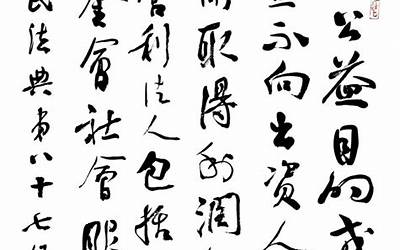 公益目的或
不向出资人
所取得利潤
营利法人包括
基金會社會服
民法典第八十七条